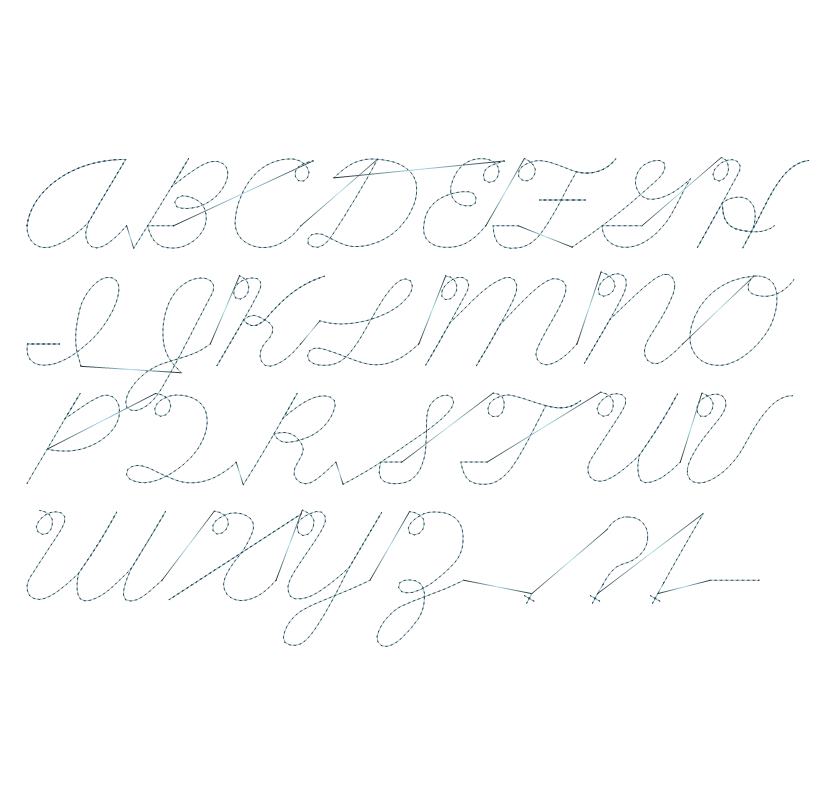 ABCDEFGH
IJKLMNO
PQRSTUV
WXYZ.?!-